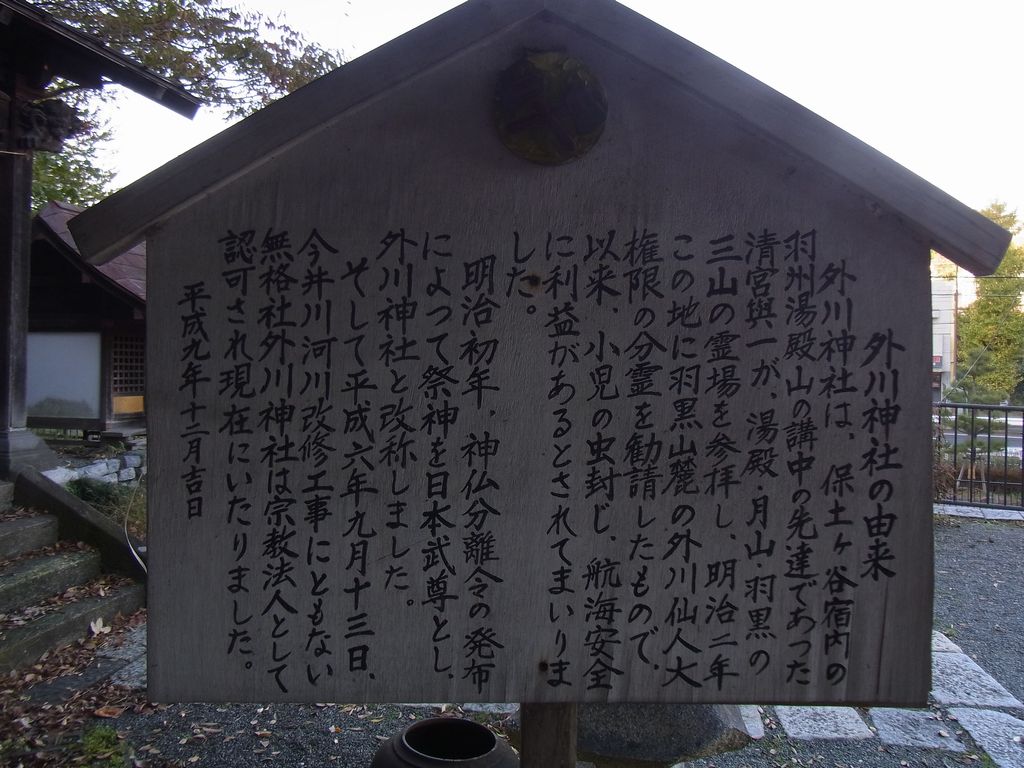 外川神社の由来
外川神社は、保土ヶ谷宿内の
羽州湯殿山の講中の先達であった
清宮與一が、湯殿・月山・羽黒の
三山の霊場を参拝し、明治二年
この地に羽黒山麓の外川仙人大
権限の分霊を勧請したもので、
以来、小児の虫封じ、航海安全
に利益があるとされてまいりま
した。
明治初年、神仏分離令の発布
によって祭神を日本武尊とし、
外川神社と改称しました。
そして平成六年九月十三日、
今井川河川改修工事にともない
無格社外川神社は宗教法人として
認可され現在にいたりました。
平成九年十二月吉日